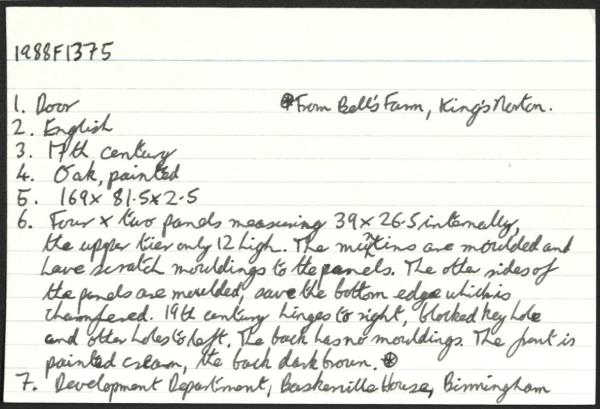 1988F1375
1. Door ⊛From Bell's Farm, King's Norton.
2. English
3. 17th century
4. Oak, painted
5. 169x 81.5x2.5
6. Four x two panels measuring 39x26.5 internally,
the upper tier only 12 high. The muntins are moulded and
have scratch mouldings to the panels. The other sides of
the panels are moulded, save the bottom edge which is
chamfered. 19th century hinges to right, blocked key hole
and other holes to left. The back has no mouldings. The front is
painted cream, the back dark brown. ⊛
7. Development Department, Baskerville House, Birmingham